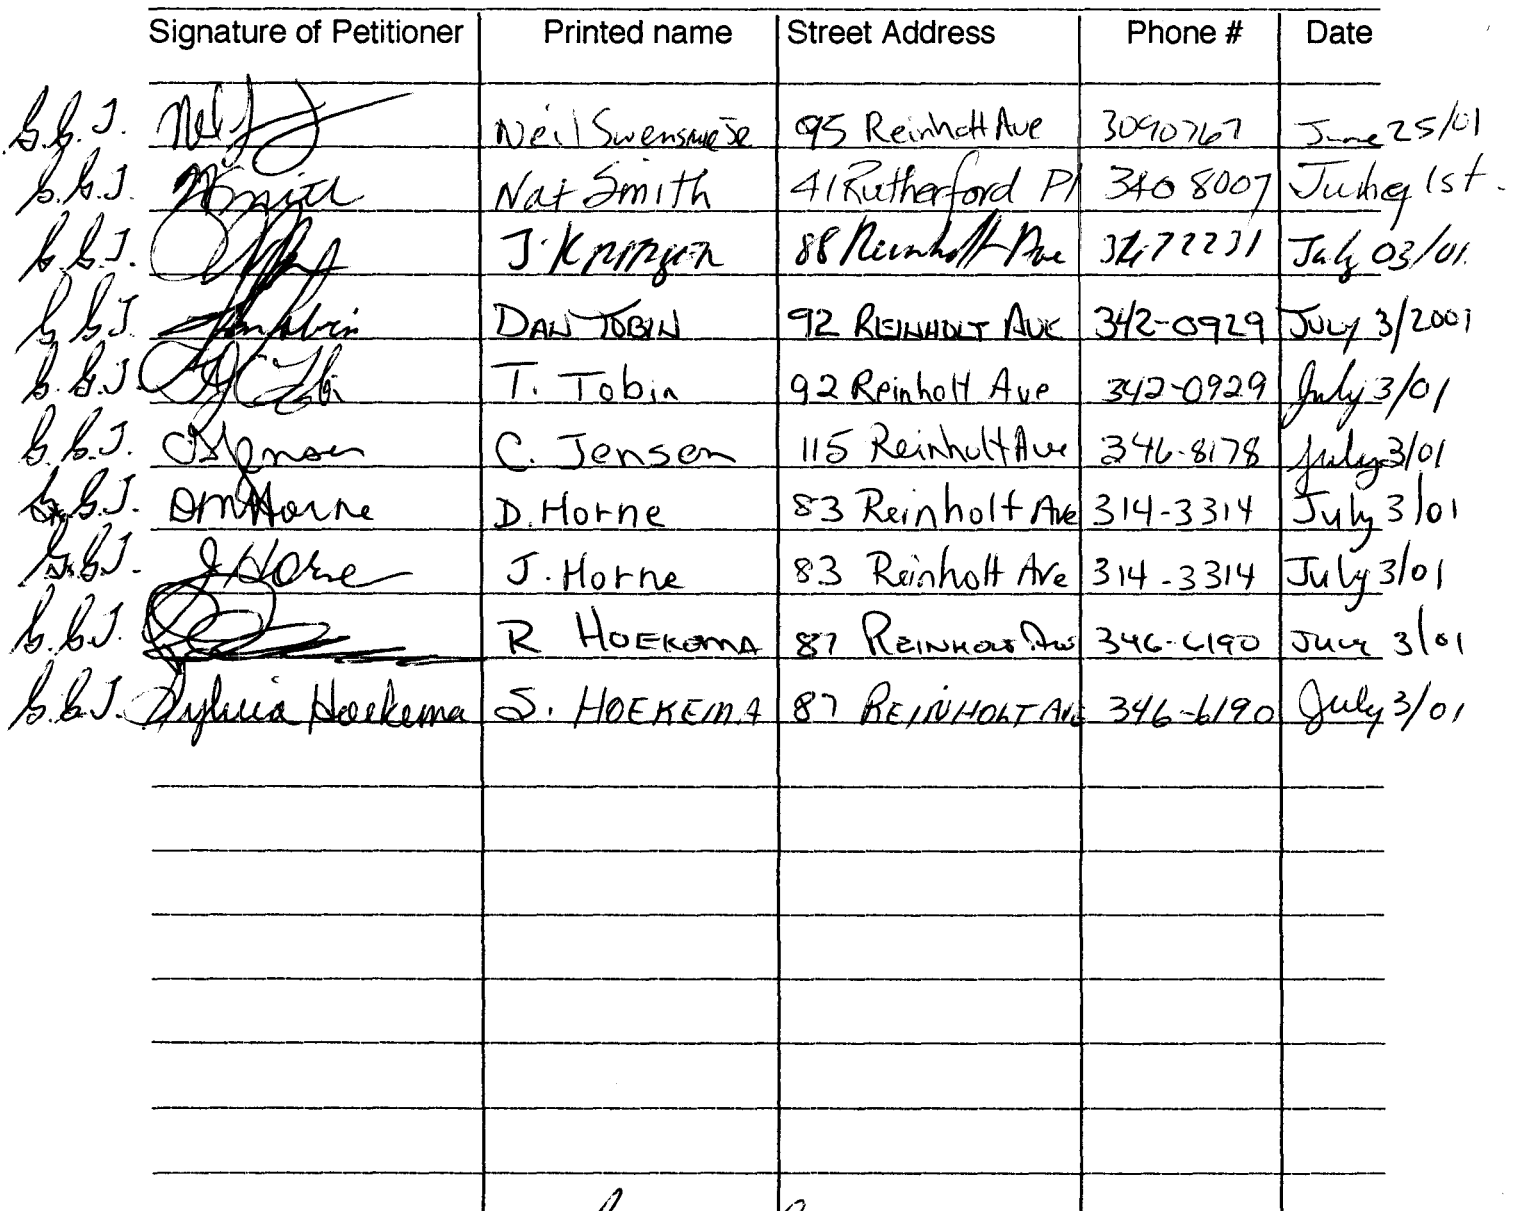 Signature of Petitioner Printed name Street Address Phone # Date
Neil 95 Reinholt Ave 3090767 June 25/01
NSmith Nat Smith 41 Rutherford Pl 340 8007 1st.
J. 88 Reinholt Ave 3472231 July 03/01
Dan Tobin DAN TOBIN 92 REINHOLT AVE 342-0929 JULY 3/2001
T. Tobin 92 Reinholt Ave 342-0929 July 3/01
CJensen C. Jensen 115 Reinholt Ave 346-8178 July 3/01
DMHorne D. Horne 83 Reinholt Ave 314-3314 July 3/01
J Horne J. Horne 83 Reinholt Ave 314-3314 July 3/01
R HOEKEMA 87 REINHOLT AVE 346-6190 JULY 3/01
Sylvia Hoekema S. HOEKEMA 87 REINHOLT AVE 346-6190 July 3/01